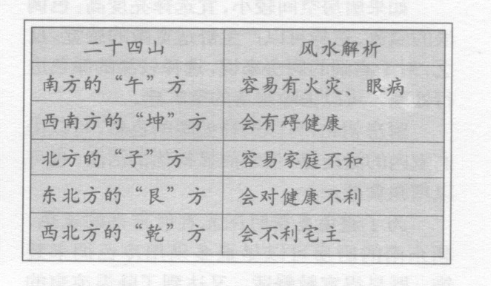 二十四山 风水解析
南方的“午”方 容易有火灾、眼病
西南方的“坤”方 会有碍健康
北方的“子”方 容易家庭不和
东北方的“艮”方 会对健康不利
西北方的“乾”方 会不利宅主